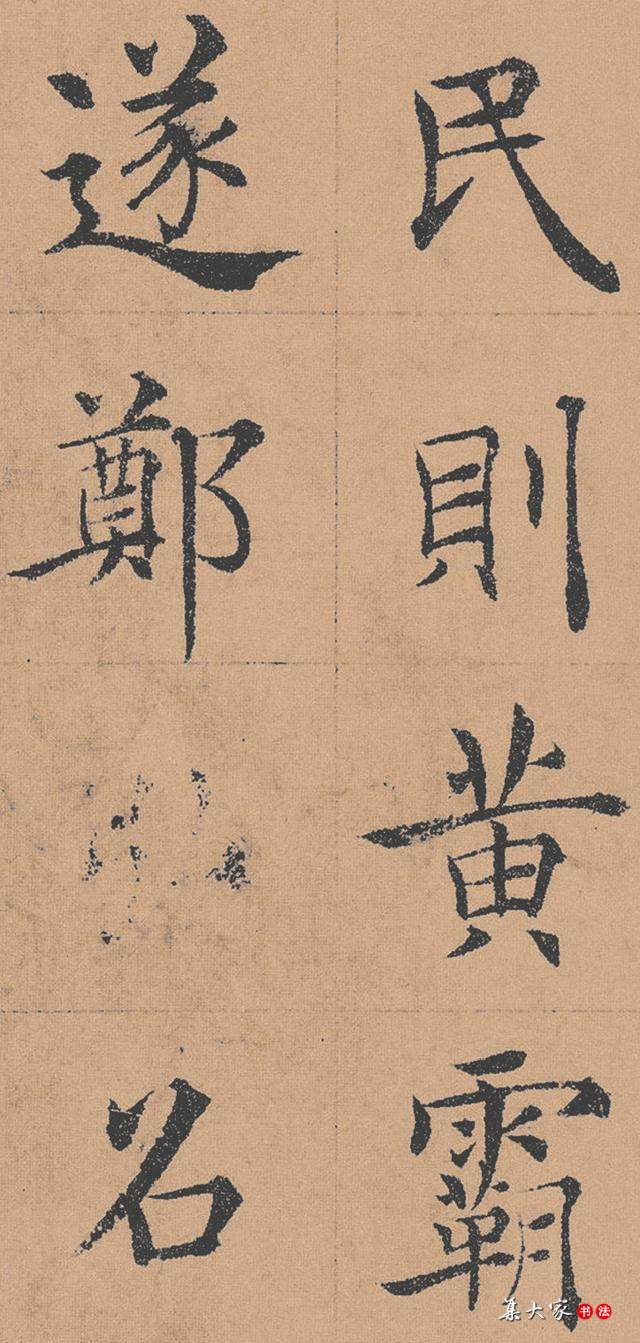 民則黄霸
遂鄭
召
集大家 书法